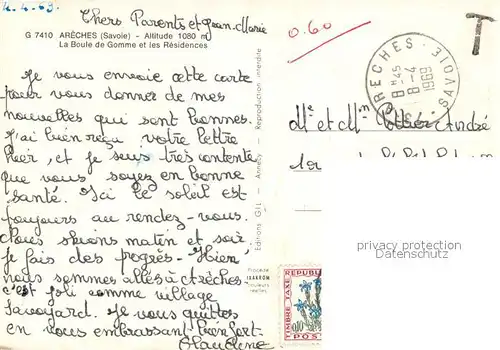 4-4-69.
Chers Parents et Jean-Marie
G 7410 ARÊCHES (Savoie) - Altitude 1080 m
La Boule de Gomme et les Résidences
0.60
T
ARÊCHES
8H45
8-4
1969
SAVOIE
Je vous envoie cette carte
pour vous donner de mes
nouvelles qui sont bonnes.
J'ai bien reçu votre lettre
hier, et je suis très contente
que vous soyez en bonne
santé. Ici le soleil est
toujours au rendez-vous.
Nous skions matin et soir.
Je fais des progrès. Hier,
nous sommes allés à Arêches
c'est joli comme village
Savoyard. Je vous quittes
en vous embrassant bien fort.
Claudine
Editions GIL - Annecy - Reproduction interdite
Mr et Mme André
privacy protection
Datenschutz
Procédé
couleurs
réelles
REPUBL
TIMBRE TAXE
POS